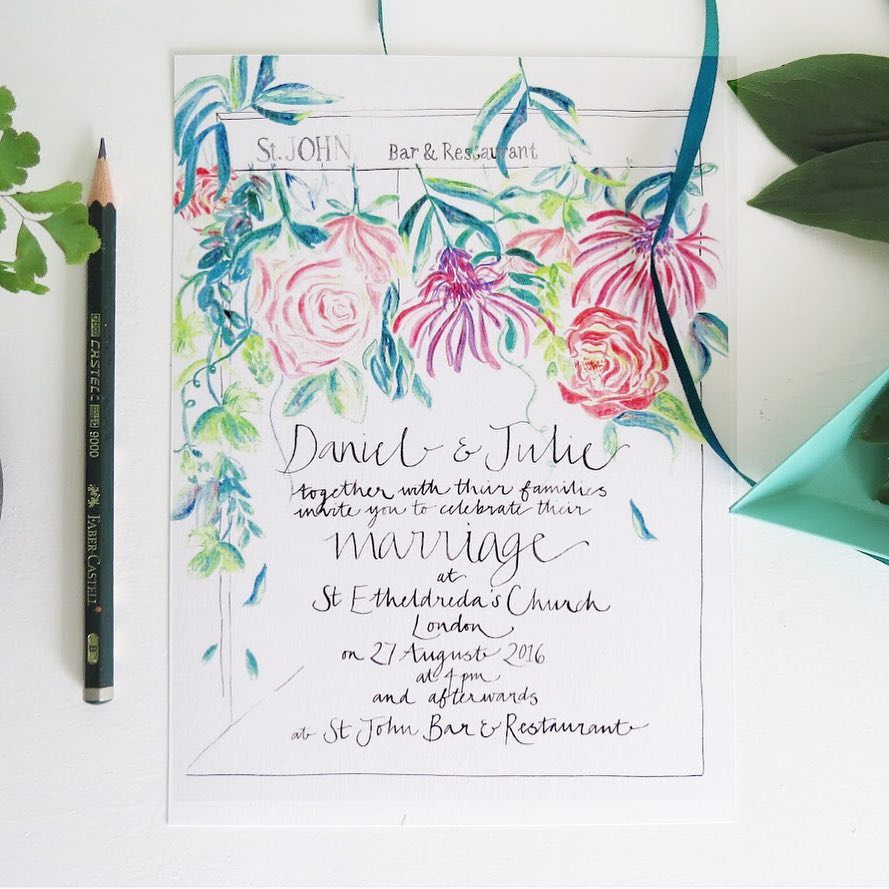 St. JOHN Bar & Restaurant
Daniel & Julie
together with their families
invite you to celebrate their
marriage
at
St Etheldreda's Church
London
on 27 August 2016
at 4pm
and afterwards
at St John Bar & Restaurant
CASTELL 9000
FABER-CASTELL
B